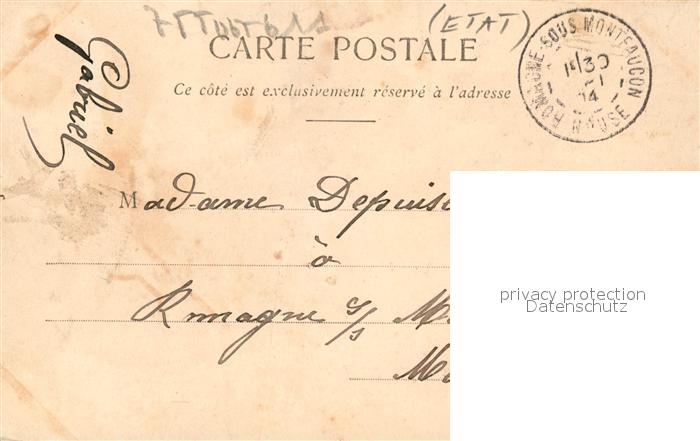 (ETAT)
CARTE POSTALE
Ce côté est exclusivement réservé à l'adresse
ROMAGNE-SOUS-MONTFAUCON
MEUSE
Gabriel
Madame Depuis
à
Romagne s/s M
M
privacy protection
Datenschutz